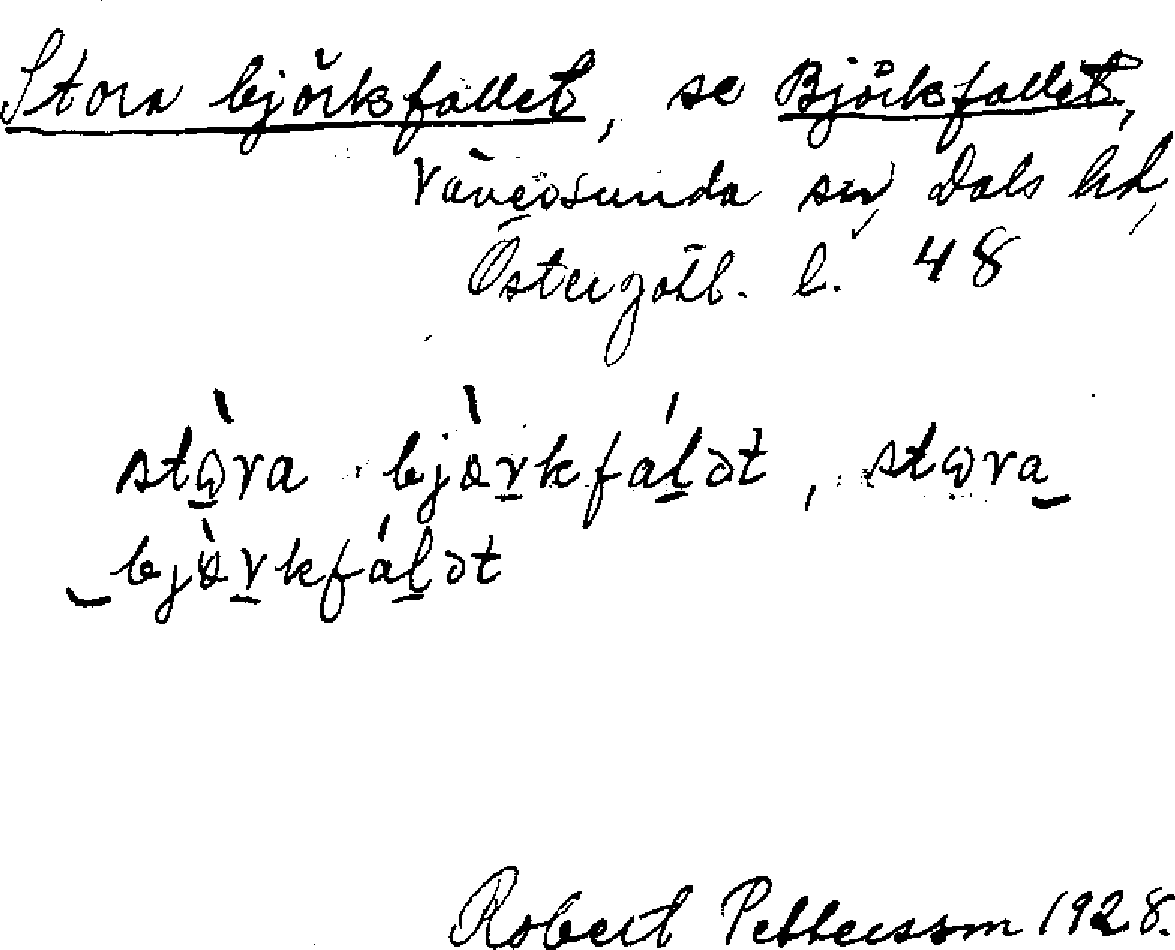 Stora björkfallet, se Björkfallet,
Väversunda sn, Dals hd,
Östergötl. l. 48
stɷ̠̀ra bjɶ̀r̠kfál̠ət, stɷra‿
‿bjɶ̀r̠kfál̠ət
Robert Pettersson 1928.